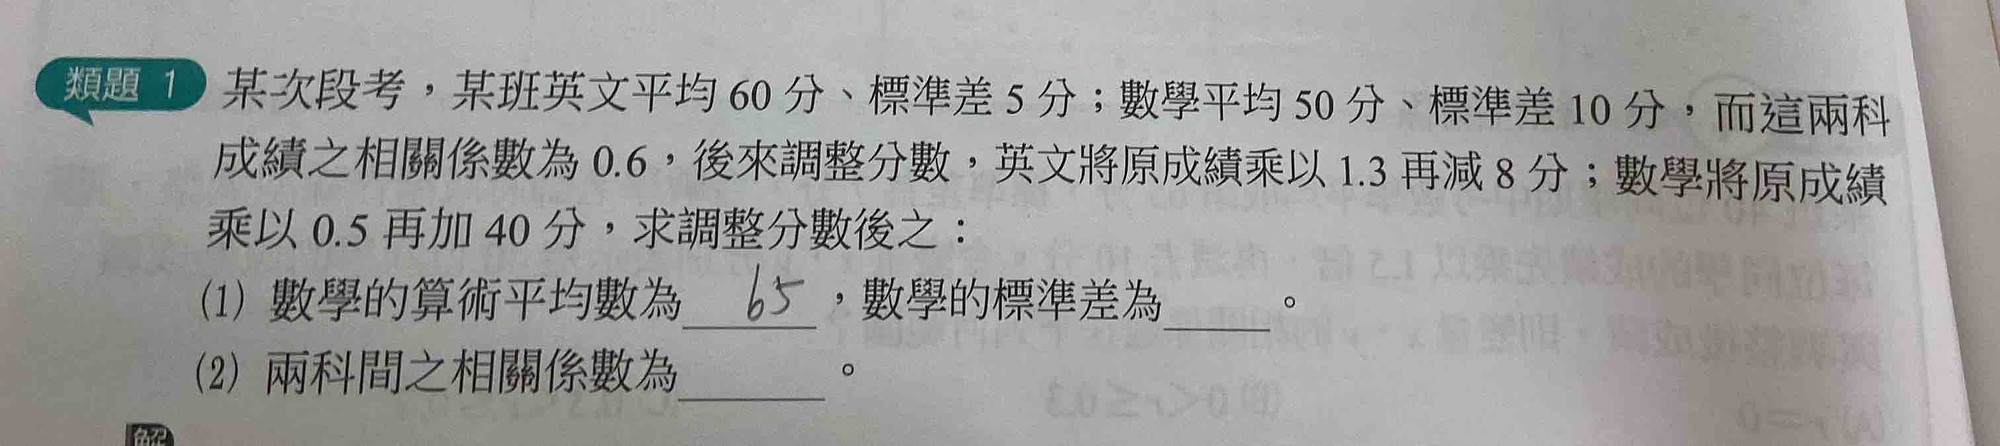 類題 1 某次段考，某班英文平均 60 分、標準差 5 分；數學平均 50 分、標準差 10 分，而這兩科
成績之相關係數為 0.6，後來調整分數，英文將原成績乘以 1.3 再減 8 分；數學將原成績
乘以 0.5 再加 40 分，求調整分數後之：
(1) 數學的算術平均數為 65 ，數學的標準差為____。
(2) 兩科間之相關係數為____。
解